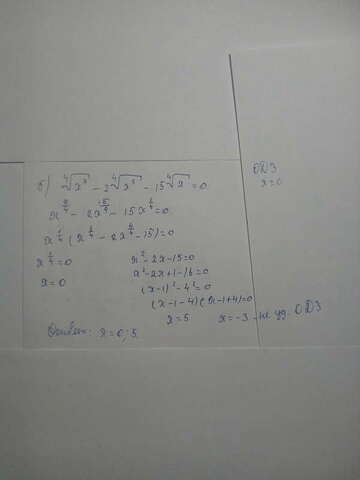 б) ⁴√x⁹ - 2⁴√x⁵ - 15⁴√x = 0
x^(9/4) - 2x^(5/4) - 15x^(1/4) = 0
x^(1/4) (x^(8/4) - 2x^(4/4) - 15) = 0
x^(1/4) = 0
x = 0
x² - 2x - 15 = 0
x² - 2x + 1 - 16 = 0
(x-1)² - 4² = 0
(x-1-4)(x-1+4) = 0
x = 5 x = -3 - не уд. ОДЗ
Ответ: x = 0; 5.
ОДЗ